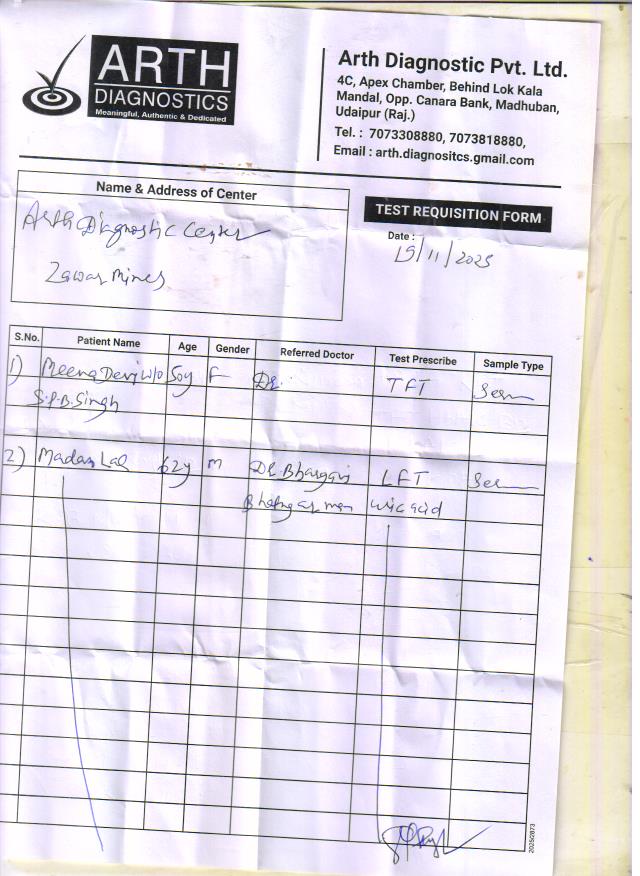 ARTH
DIAGNOSTICS
Meaningful, Authentic & Dedicated
Arth Diagnostic Pvt. Ltd.
4C, Apex Chamber, Behind Lok Kala
Mandal, Opp. Canara Bank, Madhuban,
Udaipur (Raj.)
Tel. : 7073308880, 7073818880,
Email : arth.diagnositcs.gmail.com
Name & Address of Center
Arth Diagnostic Center
Zawar Mines
TEST REQUISITION FORM
Date :
15/11/2025
S.No. Patient Name Age Gender Referred Doctor Test Prescribe Sample Type
1) Meena Devi w/o 50y F Dr. TFT Serum
S.P.B. Singh
2) Madan Lal 62y M Dr. Bhargavi LFT Serum
uric acid
2025/2873